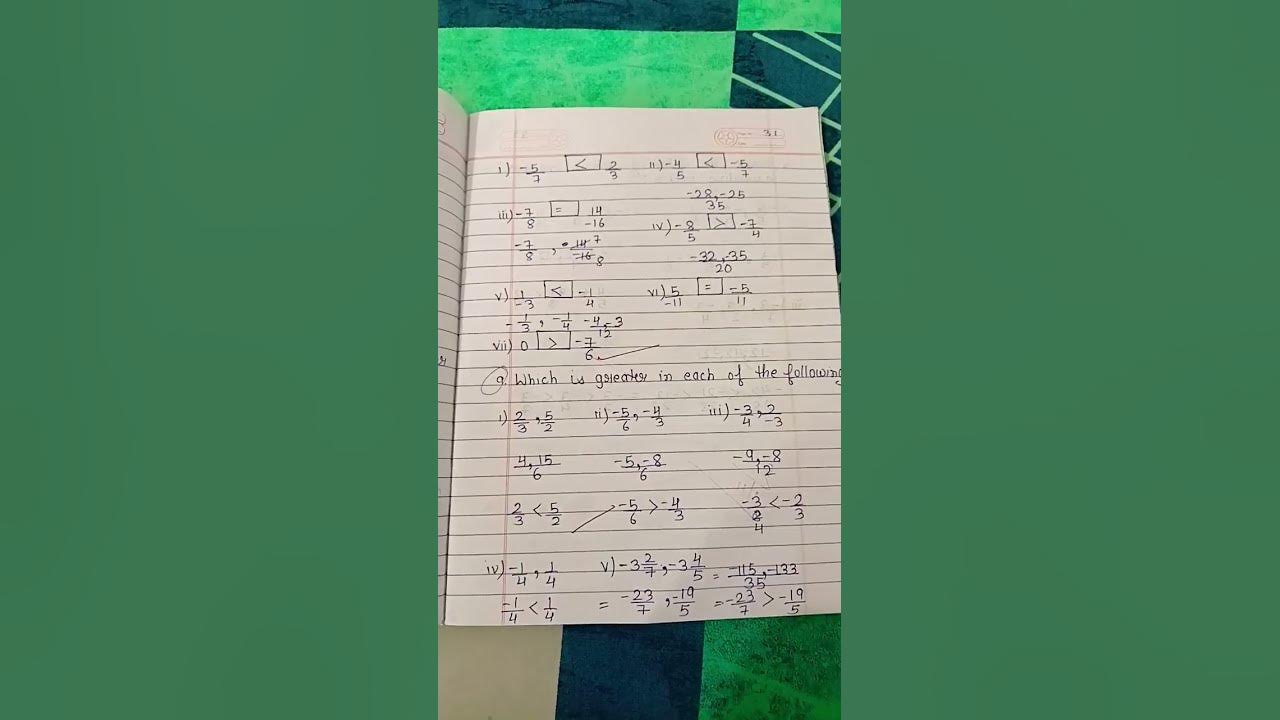 31
i) -5/7 [<] 2/3 ii) -4/5 [<] -5/7
-28,-25/35
iii) -7/8 [=] 14/-16 iv) -8/5 [>] -7/4
-7/8 , 14 7/-16 8 -32,-35/20
v) 1/-3 [<] -1/4 vi) 5/-11 [=] -5/11
-1/3 , -1/4 -4,-3/12
vii) 0 [>] -7/6
9. Which is greater in each of the following
i) 2/3 , 5/2 ii) -5/6 , -4/3 iii) -3/4 , 2/-3
4,15/6 -5,-8/6 -9,-8/12
2/3 < 5/2 -5/6 > -4/3 -3/4 < -2/3
iv) -1/4 , 1/4 v) -3 2/7 , -3 4/5 = -115,-133/35
-1/4 < 1/4 = -23/7 , -19/5 = -23/7 > -19/5